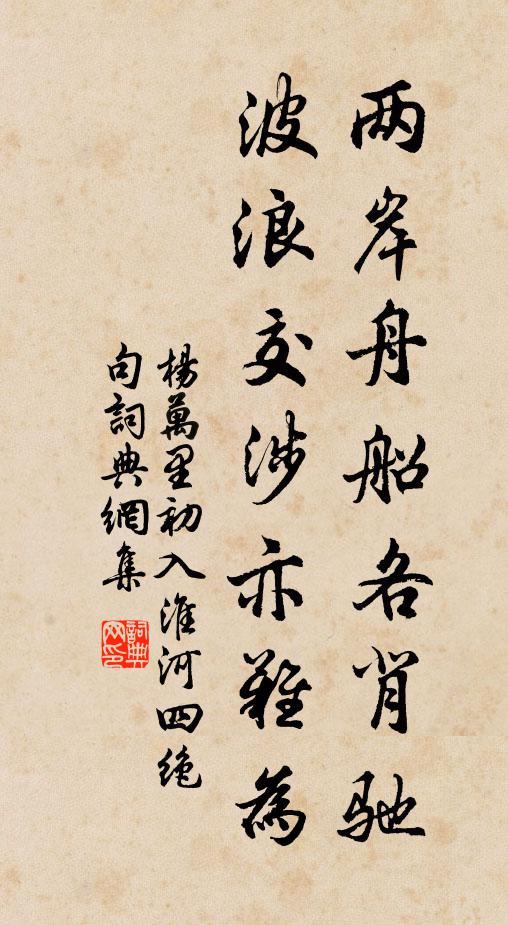 两岸舟船各背驰
波浪交涉亦難為
楊萬里初入淮河四絶
句詞典網集
詞典
网印